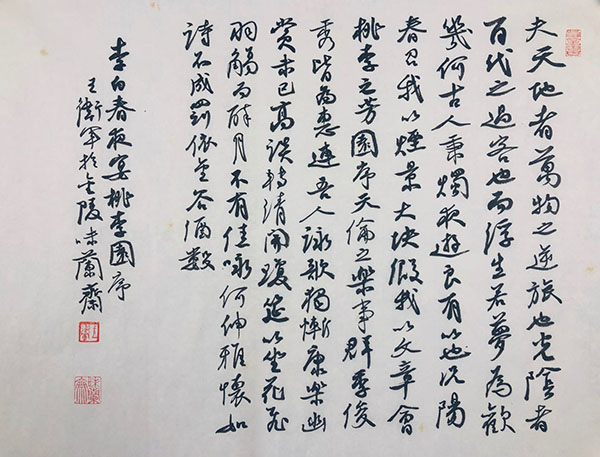 夫天地者萬物之逆旅也光陰者
百代之過客也而浮生若夢為歡
幾何古人秉燭夜遊良有以也況陽
春召我以煙景大塊假我以文章會
桃李之芳園序天倫之樂事群季俊
秀皆為惠連吾人詠歌獨慚康樂幽
賞未已高談轉清開瓊筵以坐花飛
羽觴而醉月不有佳咏何伸雅懷如
詩不成罰依金谷酒數
李白春夜宴桃李園序
王衛軍於金陵味蘭齋